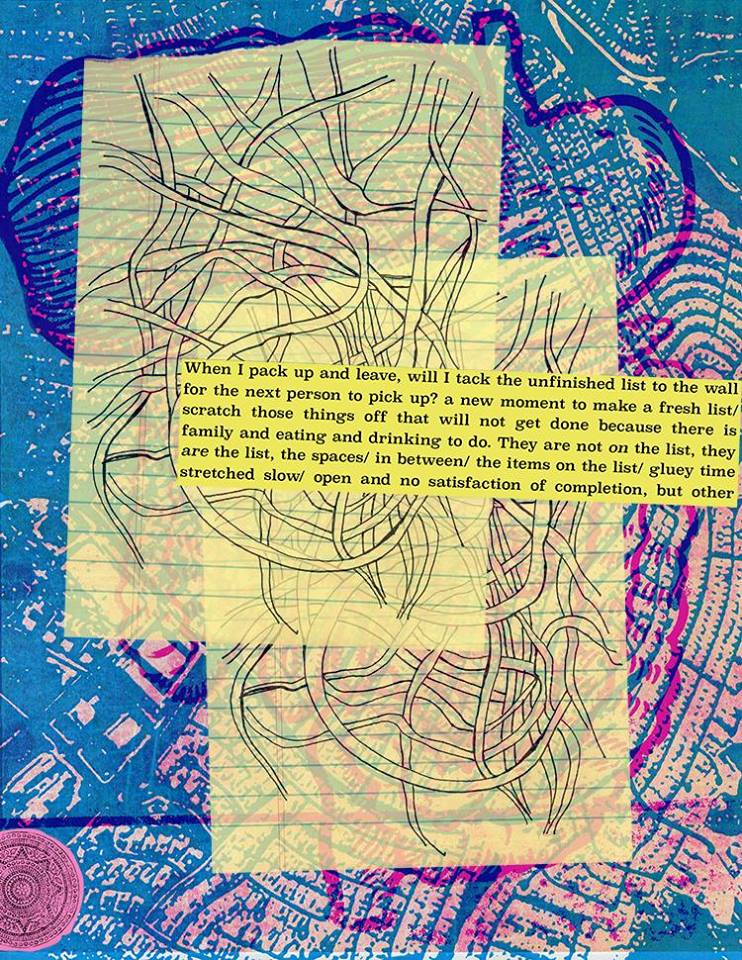 When I pack up and leave, will I tack the unfinished list to the wall
for the next person to pick up? a new moment to make a fresh list/
scratch those things off that will not get done because there is
family and eating and drinking to do. They are not on the list, they
are the list, the spaces/ in between/ the items on the list/ gluey time
stretched slow/ open and no satisfaction of completion, but other